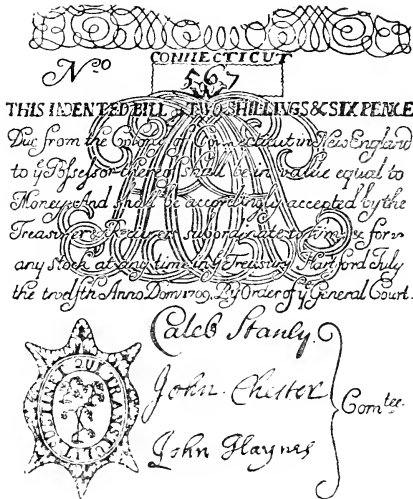 CONNECTICUT
No 567
THIS INDENTED BILL of TWO SHILLINGS & SIX PENCE
Due from the Colony of Connecticut in New England
to ye Possessor thereof shall be in value equal to
Money & And shall be accordingly accepted by the
Treasurer & Receivers subordinate to him & for
any Stock at any time in ye Treasury Hartford July
the twelfth Anno Dom: 1709. By Order of ye General Court.
Caleb Stanly.
John Chester
John Haynes
Comtee.
SUSTINET QUI TRANSTULIT